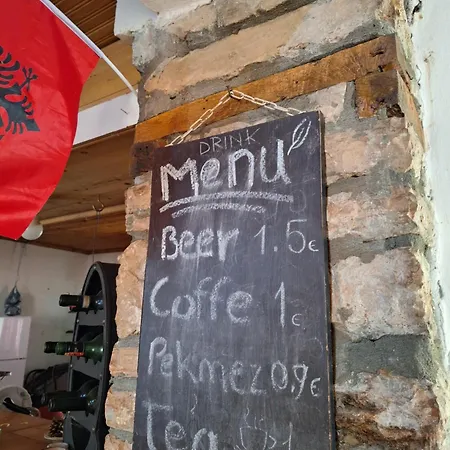 DRINK
Menu
Beer 1.5€
Coffe 1€
Pekmez 0,7€
Tea 1